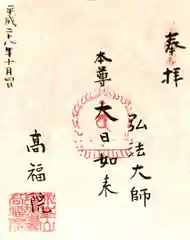 奉拝
弘法大師
本尊 大日如来
高福院
平成二十八年十月四日